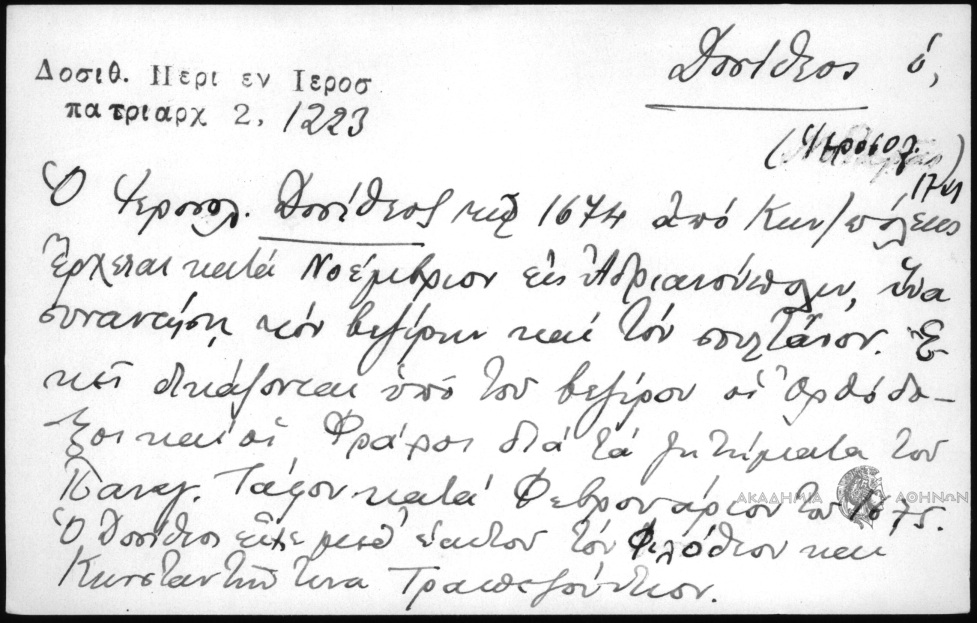 Δοσιθ. Περι εν Ιεροσ
πατριαρχ 2, 1223
Δοσίθεος ὁ,
(Ἱεροσολ.)
Ὁ Ἱεροσολ. Δοσίθεος τῷ 1674 ἀπό Κων/πόλεως
ἔρχεται κατά Νοέμβριον εἰς Ἀδριανούπολιν, ἵνα
συναντήσῃ τόν βεζίρην καί τόν σουλτᾶνον. Ἐ-
κεῖ δικάζονται ὑπό τοῦ βεζίρου οἱ Ὀρθόδο-
ξοι καί οἱ Φράγκοι διά τά ζητήματα τοῦ
Παναγ. Τάφου κατά Φεβρουάριον του 1675.
Ὁ Δοσίθεος εἶχε μεθ' ἑαυτοῦ τόν Φιλόθεον καί
Κωνσταντῖνον τινα Τραπεζούντιον.
ΑΚΑΔΗΜΙΑ ΑΘΗΝΩΝ